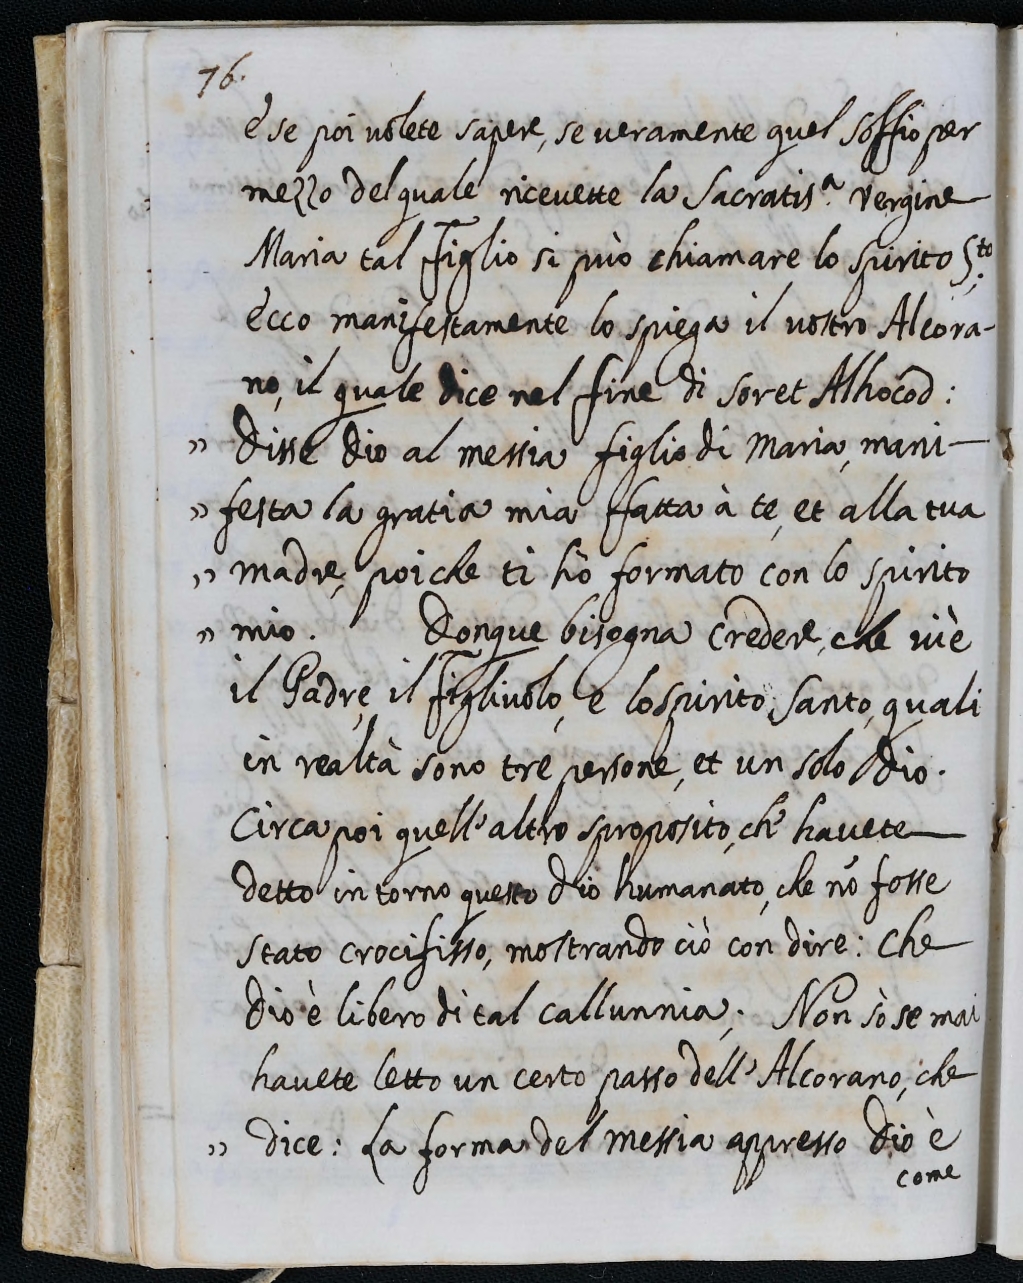 76.
E se poi uolete sapere, se ueramente quel soffio per
mezzo del quale riceuette la Sacratis.ª Vergine
Maria tal Figlio si può chiamare lo spirito S.to
Ecco manifestamente lo spiega il uostro Alcora-
no, il quale dice nel fine di soret Alhocod:
" Disse Dio al messia figlio di Maria, mani-
" festa la gratia mia ffatta à te, et alla tua
" madre, poiche ti hò formato con lo spirito
" mio. Donque bisogna credere, che ui è
il Padre, il Figliuolo, e lo spirito santo, quali
in realtà sono tre persone, et un solo Dio.
Circa poi quell'altro sproposito, ch' hauete
detto intorno questo Dio humanato, che nõ fosse
stato crocifisso, mostrando ciò con dire: che
Dio è libero di tal callunnia; Non sò se mai
hauete letto un certo passo dell'Alcorano, che
" dice: La forma del messia appresso Dio è
come